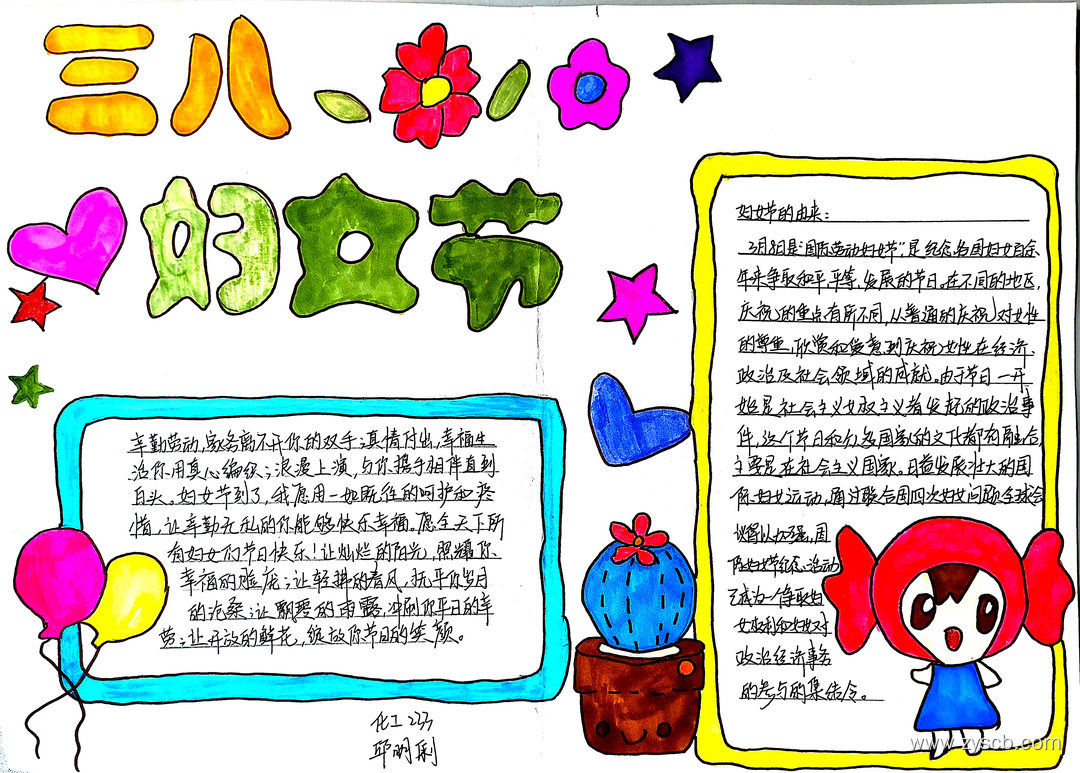 三八
妇女节
辛勤劳动,家务离不开你的双手;真情付出,幸福生
活你用真心编织;浪漫上演,与你携手相伴直到
白头。妇女节到了,我愿用一如既往的呵护和爱
情,让辛勤无私的你能够快乐幸福。愿全天下所
有妇女们节日快乐!让灿烂的阳光,照耀你
幸福的脸庞;让轻抖的春风,抚平你岁月
的沧桑;让飘零的雨露,冲刷你平日的辛
劳;让开放的鲜花,绽放你节日的笑颜。
化工233
邱明俐
妇女节的由来:
3月8日是“国际劳动妇女节”,是纪念各国妇女百余
年来争取和平、平等、发展的节日。在不同的地区,
庆祝的重点有所不同,从普通的庆祝对女性
的尊重、欣赏和爱意到庆祝女性在经济、
政治及社会领域的成就。由于节日一开
始是社会主义女权主义者发起的政治事
件,这个节日和各国家的文化都有融合,
主要是在社会主义国家。日益发展壮大的国
际妇女运动,通过联合国四次妇女问题全球会
议得以加强,国
际妇女节纪念活动
已成为一个争取妇
女权利和妇女对
政治经济事务
的参与的集结令。
www.zyscb.com